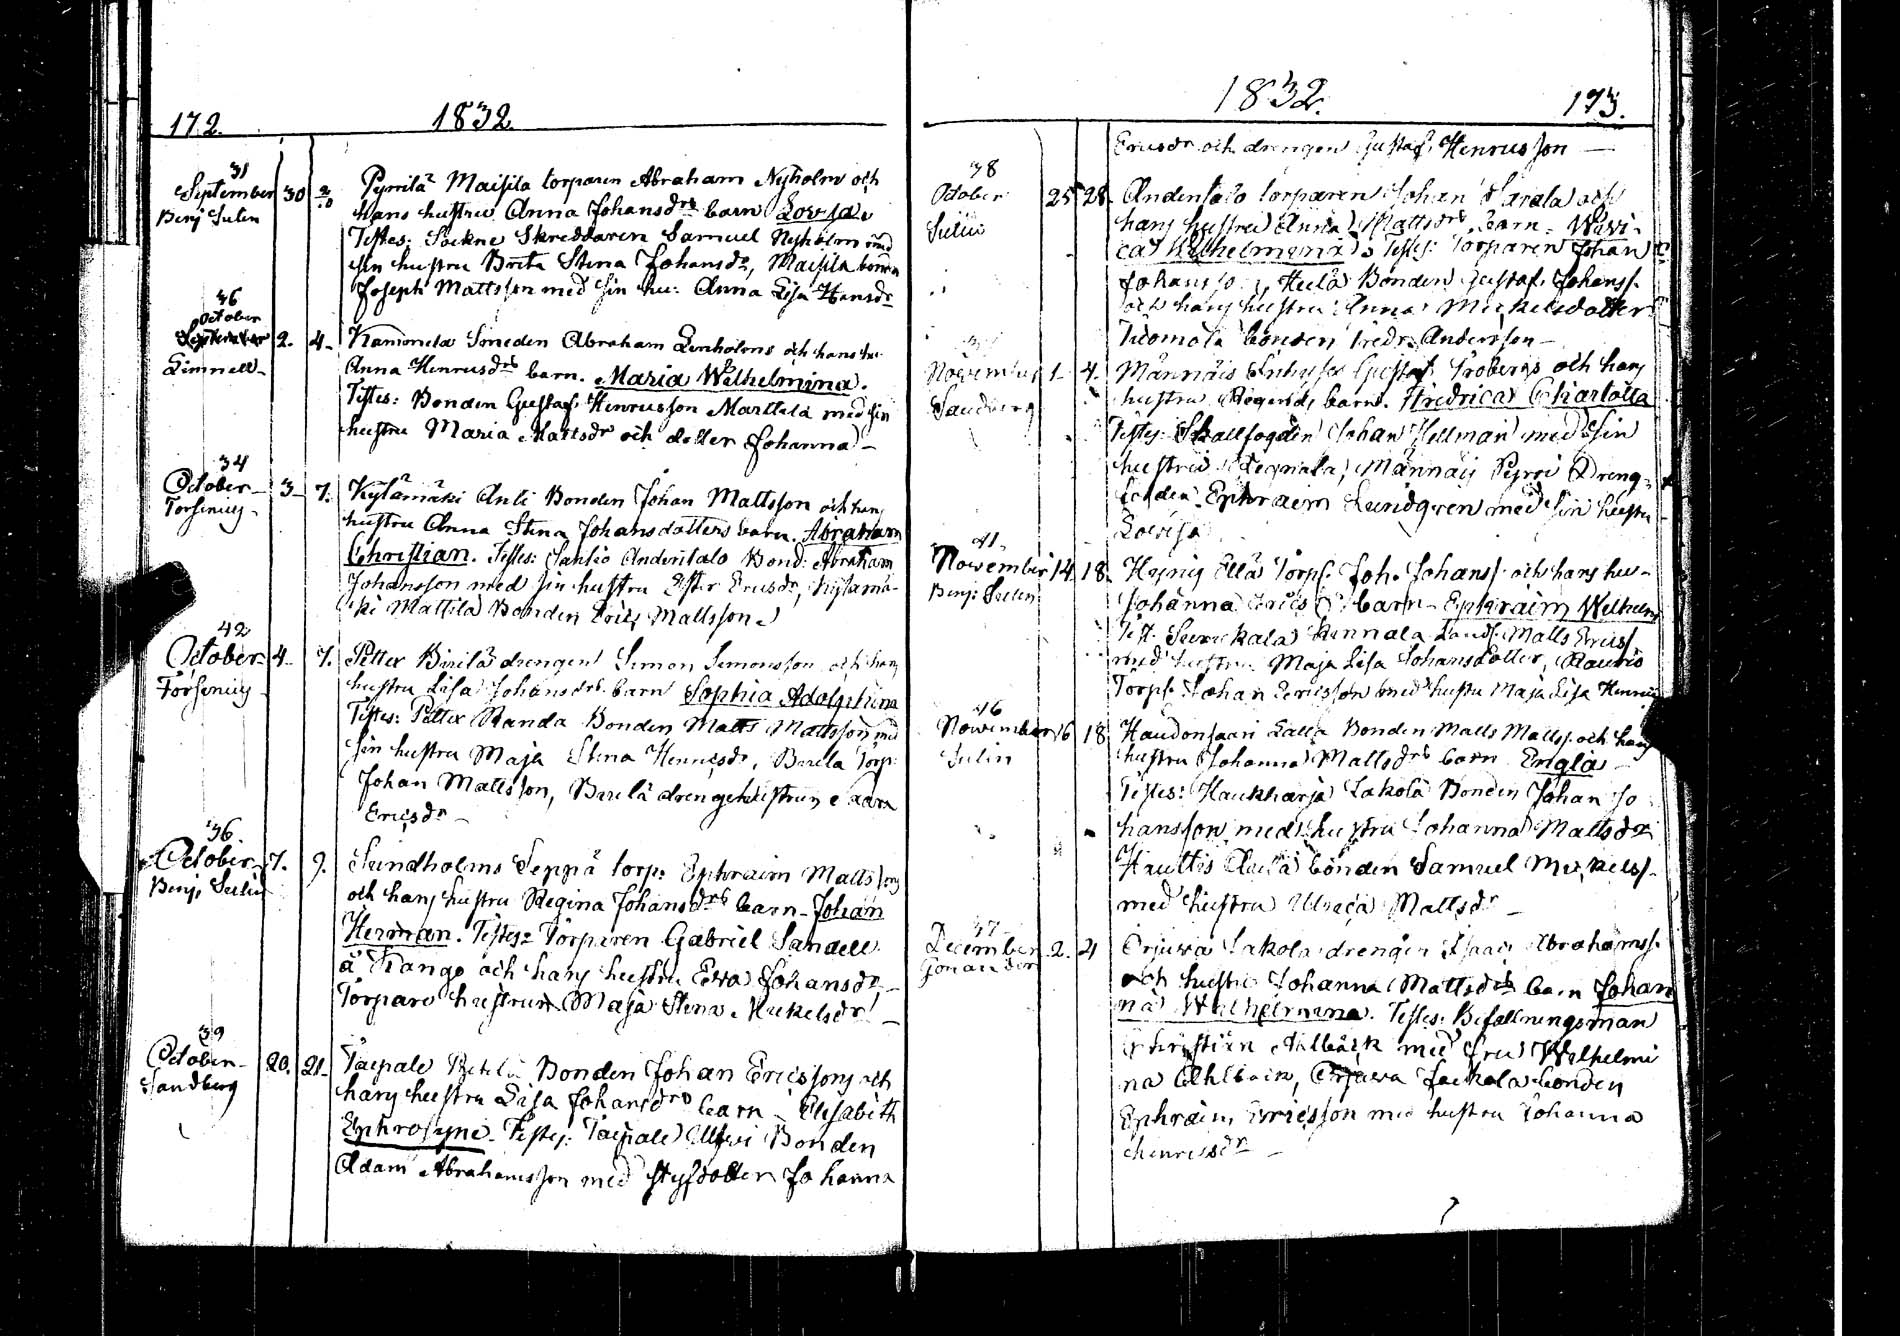 172. 1832
31
September 30 2/10 Pyrrilä Maisila torparen Abraham Nyholm och
Benj Sulin hans hustru Anna Johansdrs barn Lovisa
Testes: Sockne Skreddaren Samuel Nyholm med
sin hustru Brita Stina Johansdr, Maisila bonden
Joseph Mattsson med sin hu: Anna Lisa Hansdr
36
October
September 2. 4. Smeden Abraham och hans hu
Limnell Anna Henricsdrs barn. Maria Wilhelmina.
Testes: Bonden Gustaf Henricsson Marttila med sin
hustru Maria Mattsdr och dotter Johanna
34
October 3 7. Kylämäki Anti Bonden Johan Mattsson och hans
Forsenius hustru Anna Stina Johansdotters barn. Abraham
Christian. Testes: Anderstalo Bond: Abraham
Johansson med sin hustru Ester Ericsdr, Kylämä-
ki Mattila Bonden Eric Mattsson
42
October 4 7. Petter Birilä drengen Simon Simonsson och hans
Forsenius hustru Lisa Johansdrs barn Sophia Adolphina
Testes: Petter Randa Bonden Matts Mattsson med
sin hustru Maja Stina Henricsdr, Birila Torp:
Johan Mattsson, Birilä drengehustrun
Ericsdr
36
October 7. 9. Sundholms Seppä torp: Ephraim Mattssons
Benj. Sulin och hans hustru Regina Johansdrs barn Johan
Herman. Testes: Torparen Gabriel Sandell
å Kango och hans hustru Eva Johansdr
Torpare hustrun Maja Stina Mickelsdr
39
October 20. 21. Taipale Bonden Johan Ericssons och
Sandberg hans hustru Lisa Johansdrs barn Elisabeth
Ephrosyne. Testes: Taipale Bonden
Adam Abrahamsson med styfdotter Johanna
1832. 173.
Ericsdr och drengen Gustaf Henricsson
38
October 25 28. Andersalo torparen Johan och
Sulin hans hustru Anna Mattsdrs barn.
Wilhelmina. Testes: Torparen Johan
Johansson, Bonden Gustaf Johanss.
och hans hustru Anna Mickelsdotter
Tuomola bonden Fredr Andersson
November 1 4. Männäis Inhyses Gustaf Frobergs och hans
Sandberg hustru Reginas barn. Fredrica Charlotta
Testes: Skallfogden Johan Hellman med sin
hustru Männäis Dreng-
Ephraim Lundgren med sin hustru
Lovisa
41
November 14. 18. Torps. Joh. Johanss. och hans hus-
Benj: Sulin Johanna barn Ephraim Wilhelm
Test. Kennala Matts Ericss
med hustru Maja Lisa Johansdotter,
Torps. Johan Ericsson med hustru Maja Lisa
46
November 16 18 Haudonsaari Bonden Matts Mattss. och hans
Sulin hustru Johanna Mattsdrs barn Engla
Testes: Haukharja Bonden Johan Jo
hansson med hustru Johanna Mattsdr
Bonden Samuel Mickelss.
med hustru Ulrica Mattsdr
47
December 2. 4 Orjawa Jakola drengen Isaac Abrahamss.
Gonander och hustru Johanna Mattsdrs barn Johan
na Wilhelmina. Testes: Befallningsman
Christian Ahlbäck med fru Wilhelmi
na Ahlbäck, Orjawa Jackola bonden
Ephraim Ericsson med hustru Johanna
Henricsdr